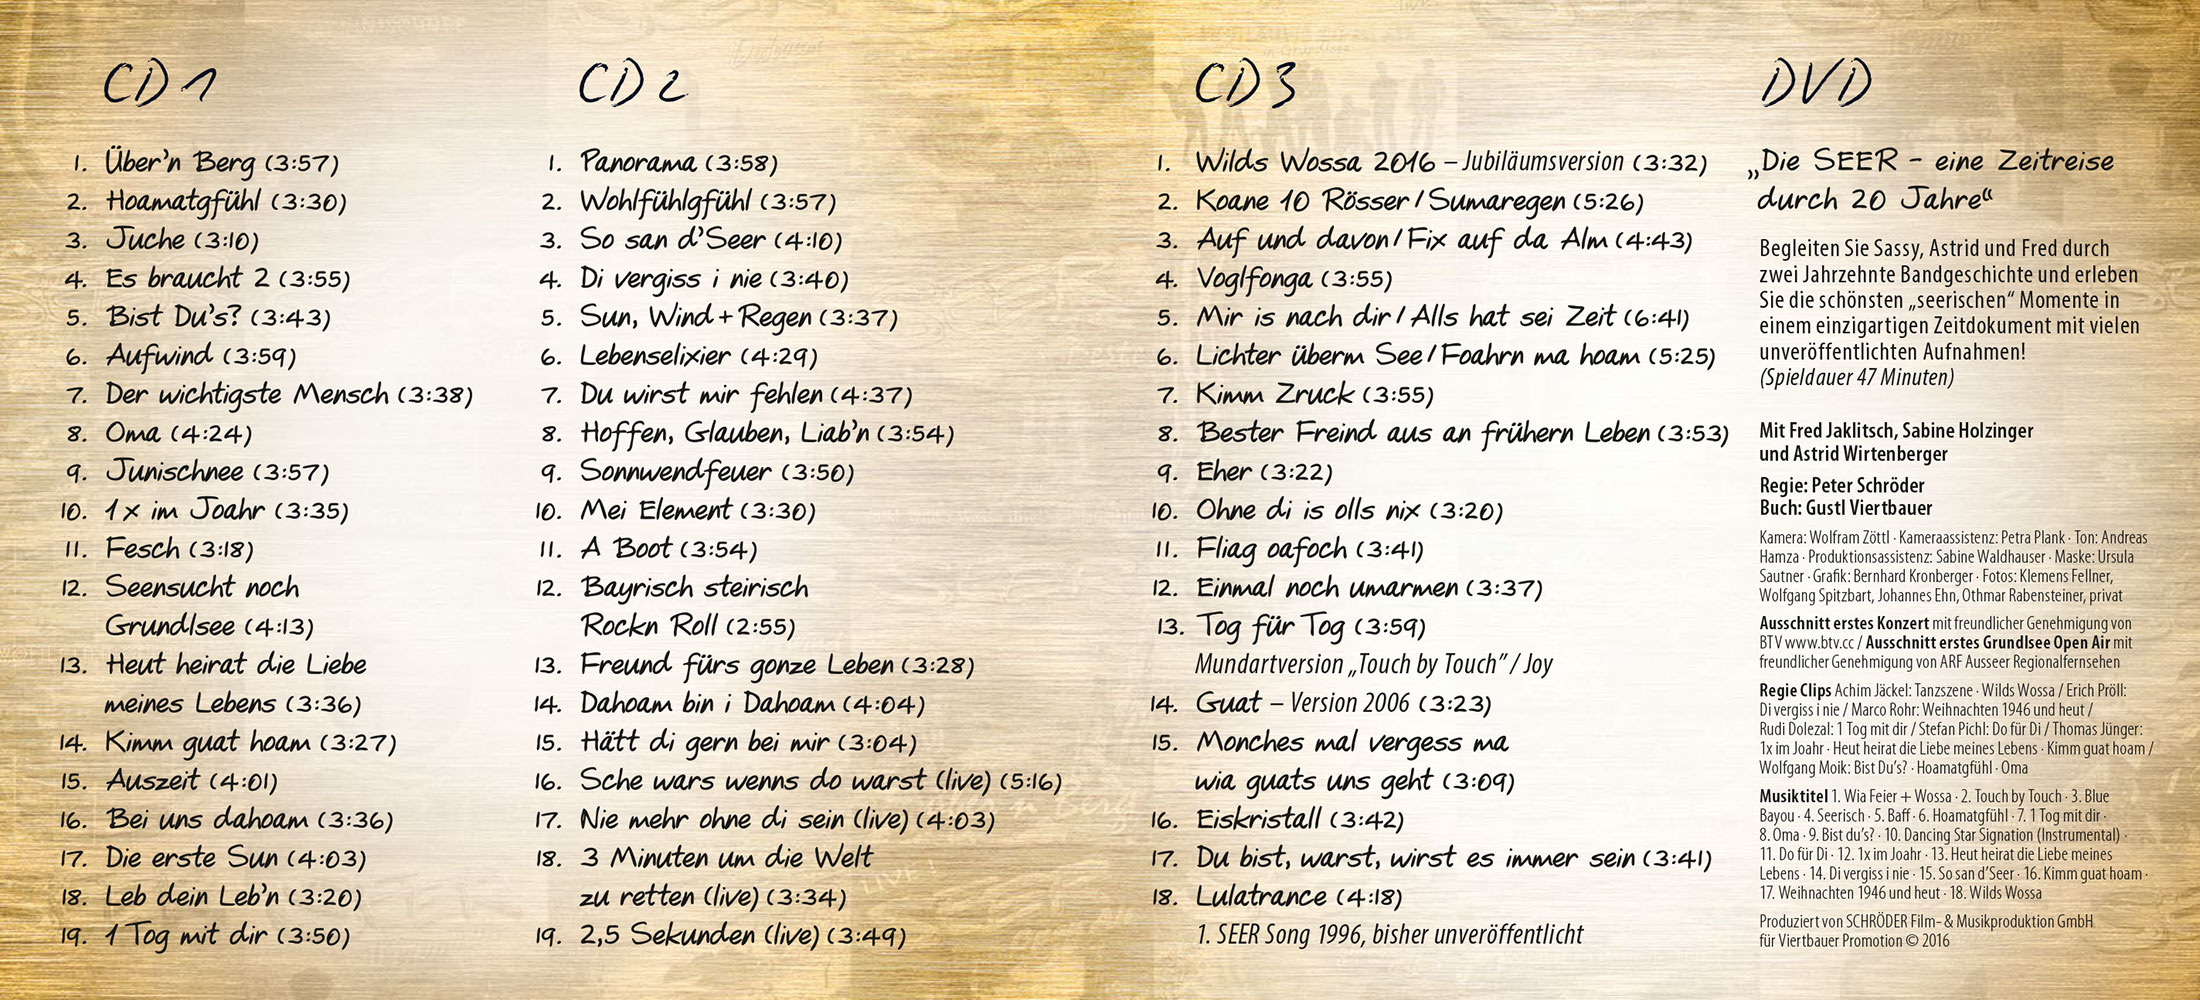 CD 1
1. Über'n Berg (3:57)
2. Hoamatgfühl (3:30)
3. Juche (3:10)
4. Es braucht 2 (3:55)
5. Bist Du's? (3:43)
6. Aufwind (3:59)
7. Der wichtigste Mensch (3:38)
8. Oma (4:24)
9. Junischnee (3:57)
10. 1x im Joahr (3:35)
11. Fesch (3:18)
12. Seensucht noch
Grundlsee (4:13)
13. Heut heirat die Liebe
meines Lebens (3:36)
14. Kimm guat hoam (3:27)
15. Auszeit (4:01)
16. Bei uns dahoam (3:36)
17. Die erste Sun (4:03)
18. Leb dein Leb'n (3:20)
19. 1 Tog mit dir (3:50)
CD 2
1. Panorama (3:58)
2. Wohlfühlgfühl (3:57)
3. So san d'Seer (4:10)
4. Di vergiss i nie (3:40)
5. Sun, Wind + Regen (3:37)
6. Lebenselixier (4:29)
7. Du wirst mir fehlen (4:37)
8. Hoffen, Glauben, Liab'n (3:54)
9. Sonnwendfeuer (3:50)
10. Mei Element (3:30)
11. A Boot (3:54)
12. Bayrisch steirisch
Rockn Roll (2:55)
13. Freund fürs gonze Leben (3:28)
14. Dahoam bin i Dahoam (4:04)
15. Hätt di gern bei mir (3:04)
16. Sche wars wenns do warst (live) (5:16)
17. Nie mehr ohne di sein (live) (4:03)
18. 3 Minuten um die Welt
zu retten (live) (3:34)
19. 2,5 Sekunden (live) (3:49)
CD 3
1. Wilds Wossa 2016 – Jubiläumsversion (3:32)
2. Koane 10 Rösser / Sumaregen (5:26)
3. Auf und davon / Fix auf da Alm (4:43)
4. Voglfonga (3:55)
5. Mir is nach dir / Alls hat sei Zeit (6:41)
6. Lichter überm See / Foahrn ma hoam (5:25)
7. Kimm Zruck (3:55)
8. Bester Freind aus an frühern Leben (3:53)
9. Eher (3:22)
10. Ohne di is olls nix (3:20)
11. Fliag oafoch (3:41)
12. Einmal noch umarmen (3:37)
13. Tog für Tog (3:59)
Mundartversion „Touch by Touch" / Joy
14. Guat – Version 2006 (3:23)
15. Monches mal vergess ma
wia guats uns geht (3:09)
16. Eiskristall (3:42)
17. Du bist, warst, wirst es immer sein (3:41)
18. Lulatrance (4:18)
1. SEER Song 1996, bisher unveröffentlicht
DVD
„Die SEER – eine Zeitreise
durch 20 Jahre“
Begleiten Sie Sassy, Astrid und Fred durch
zwei Jahrzehnte Bandgeschichte und erleben
Sie die schönsten „seerischen“ Momente in
einem einzigartigen Zeitdokument mit vielen
unveröffentlichten Aufnahmen!
(Spieldauer 47 Minuten)
Mit Fred Jaklitsch, Sabine Holzinger
und Astrid Wirtenberger
Regie: Peter Schröder
Buch: Gustl Viertbauer
Kamera: Wolfram Zöttl · Kameraassistenz: Petra Plank · Ton: Andreas
Hamza · Produktionsassistenz: Sabine Waldhauser · Maske: Ursula
Sautner · Grafik: Bernhard Kronberger · Fotos: Klemens Fellner,
Wolfgang Spitzbart, Johannes Ehn, Othmar Rabensteiner, privat
Ausschnitt erstes Konzert mit freundlicher Genehmigung von
BTV www.btv.cc / Ausschnitt erstes Grundlsee Open Air mit
freundlicher Genehmigung von ARF Ausseer Regionalfernsehen
Regie Clips Achim Jäckel: Tanzszene · Wilds Wossa / Erich Pröll:
Di vergiss i nie / Marco Rohr: Weihnachten 1946 und heut /
Rudi Dolezal: 1 Tog mit dir / Stefan Pichl: Do für Di / Thomas Jünger:
1x im Joahr · Heut heirat die Liebe meines Lebens · Kimm guat hoam /
Wolfgang Moik: Bist Du's? · Hoamatgfühl · Oma
Musiktitel 1. Wia Feier + Wossa · 2. Touch by Touch · 3. Blue
Bayou · 4. Seerisch · 5. Baff · 6. Hoamatgfühl · 7. 1 Tog mit dir ·
8. Oma · 9. Bist du's? · 10. Dancing Star Signation (Instrumental) ·
11. Do für Di · 12. 1x im Joahr · 13. Heut heirat die Liebe meines
Lebens · 14. Di vergiss i nie · 15. So san d'Seer · 16. Kimm guat hoam ·
17. Weihnachten 1946 und heut · 18. Wilds Wossa
Produziert von SCHRÖDER Film- & Musikproduktion GmbH
für Viertbauer Promotion © 2016